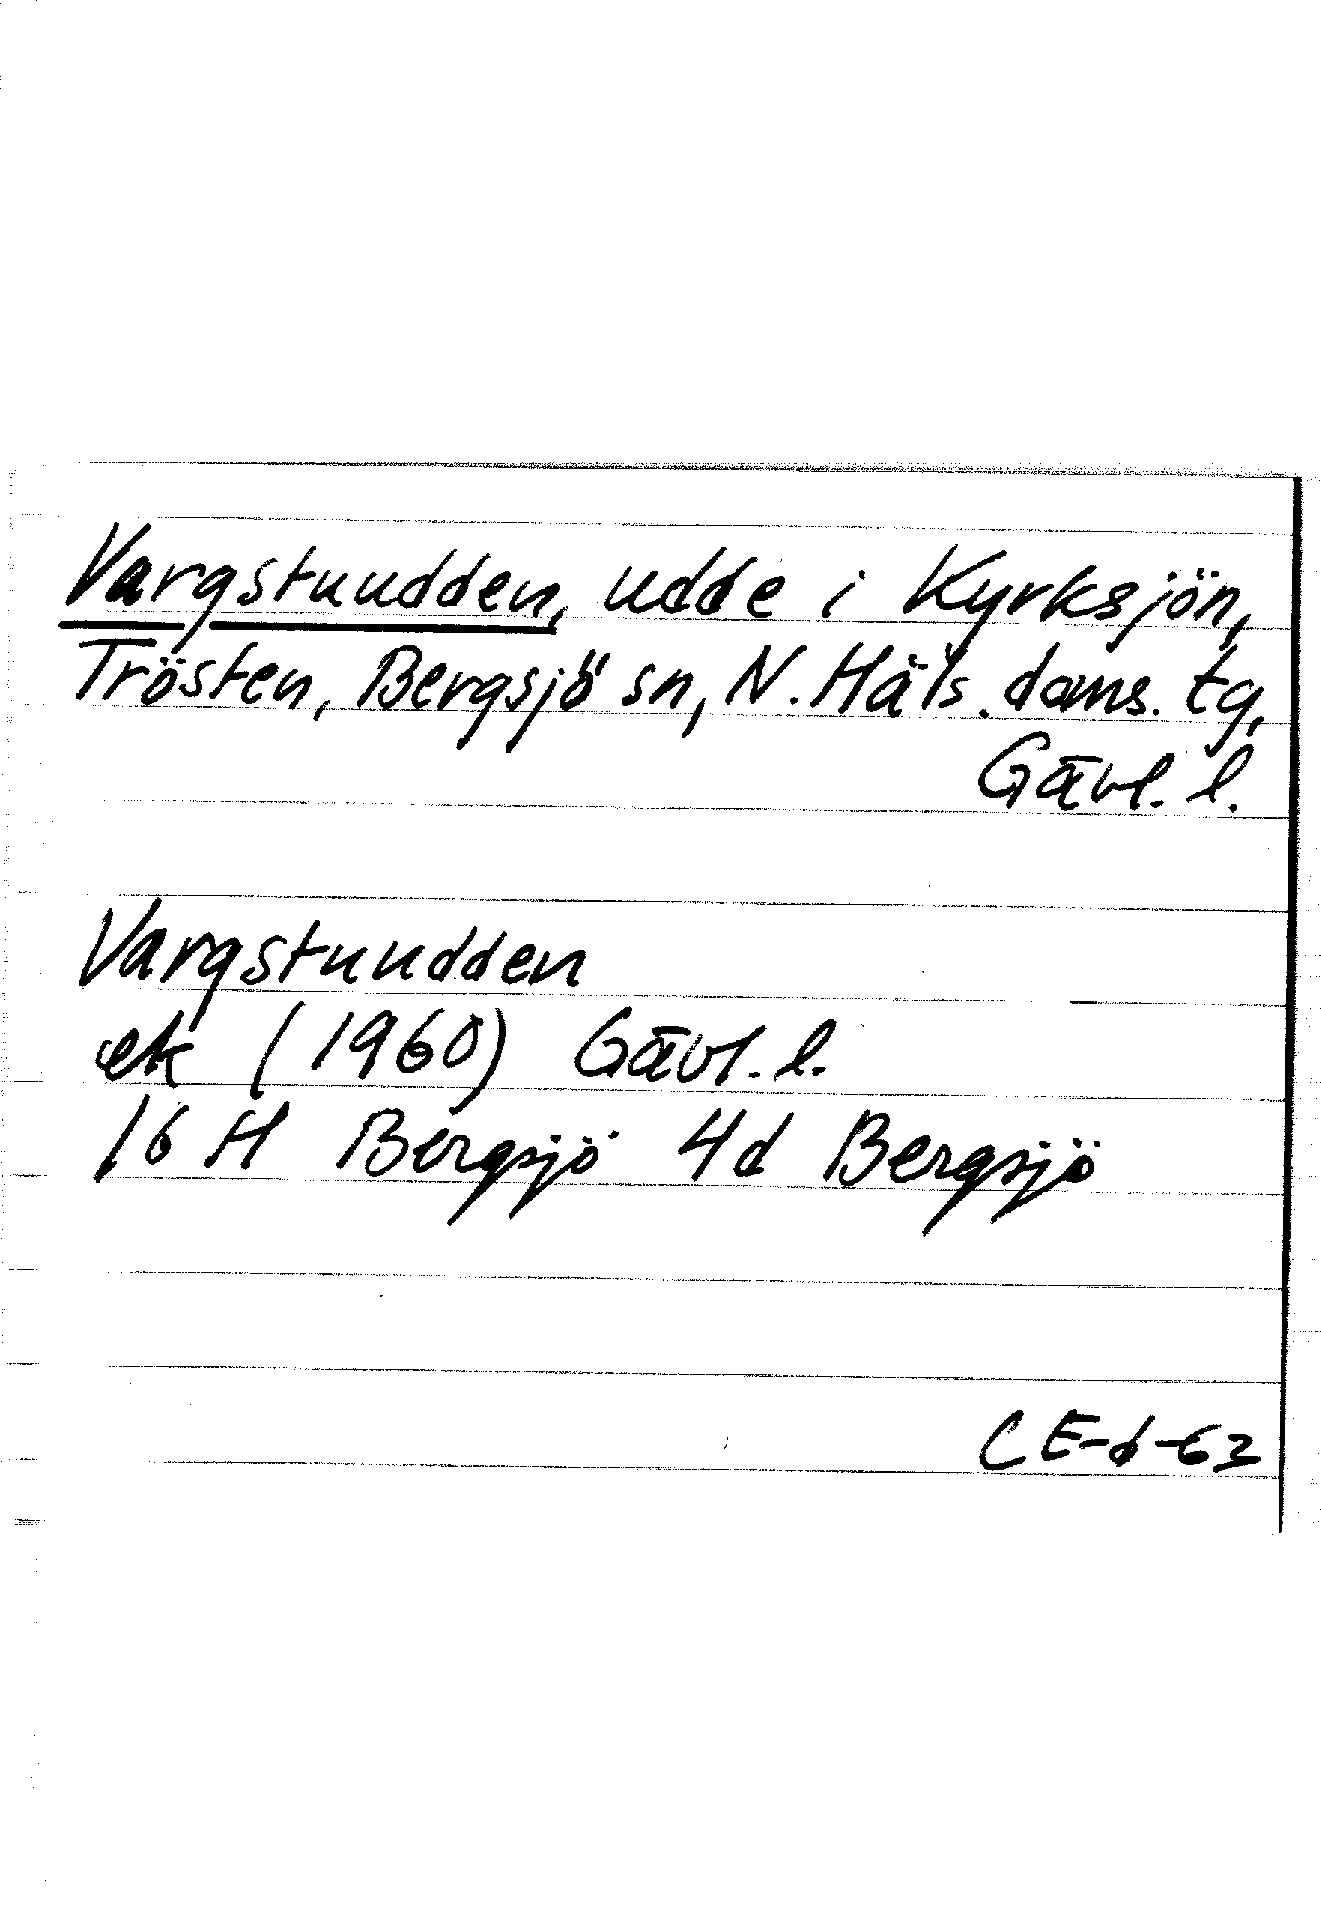 Vargstuudden, udde i Kyrksjön,
Trösten, Bergsjö sn, N. Häls. doms. tg,
Gävl. l.
Vargstuudden
ek (1960) Gävl. l.
16 H Bergsjö 4d Bergsjö
CE-d-63